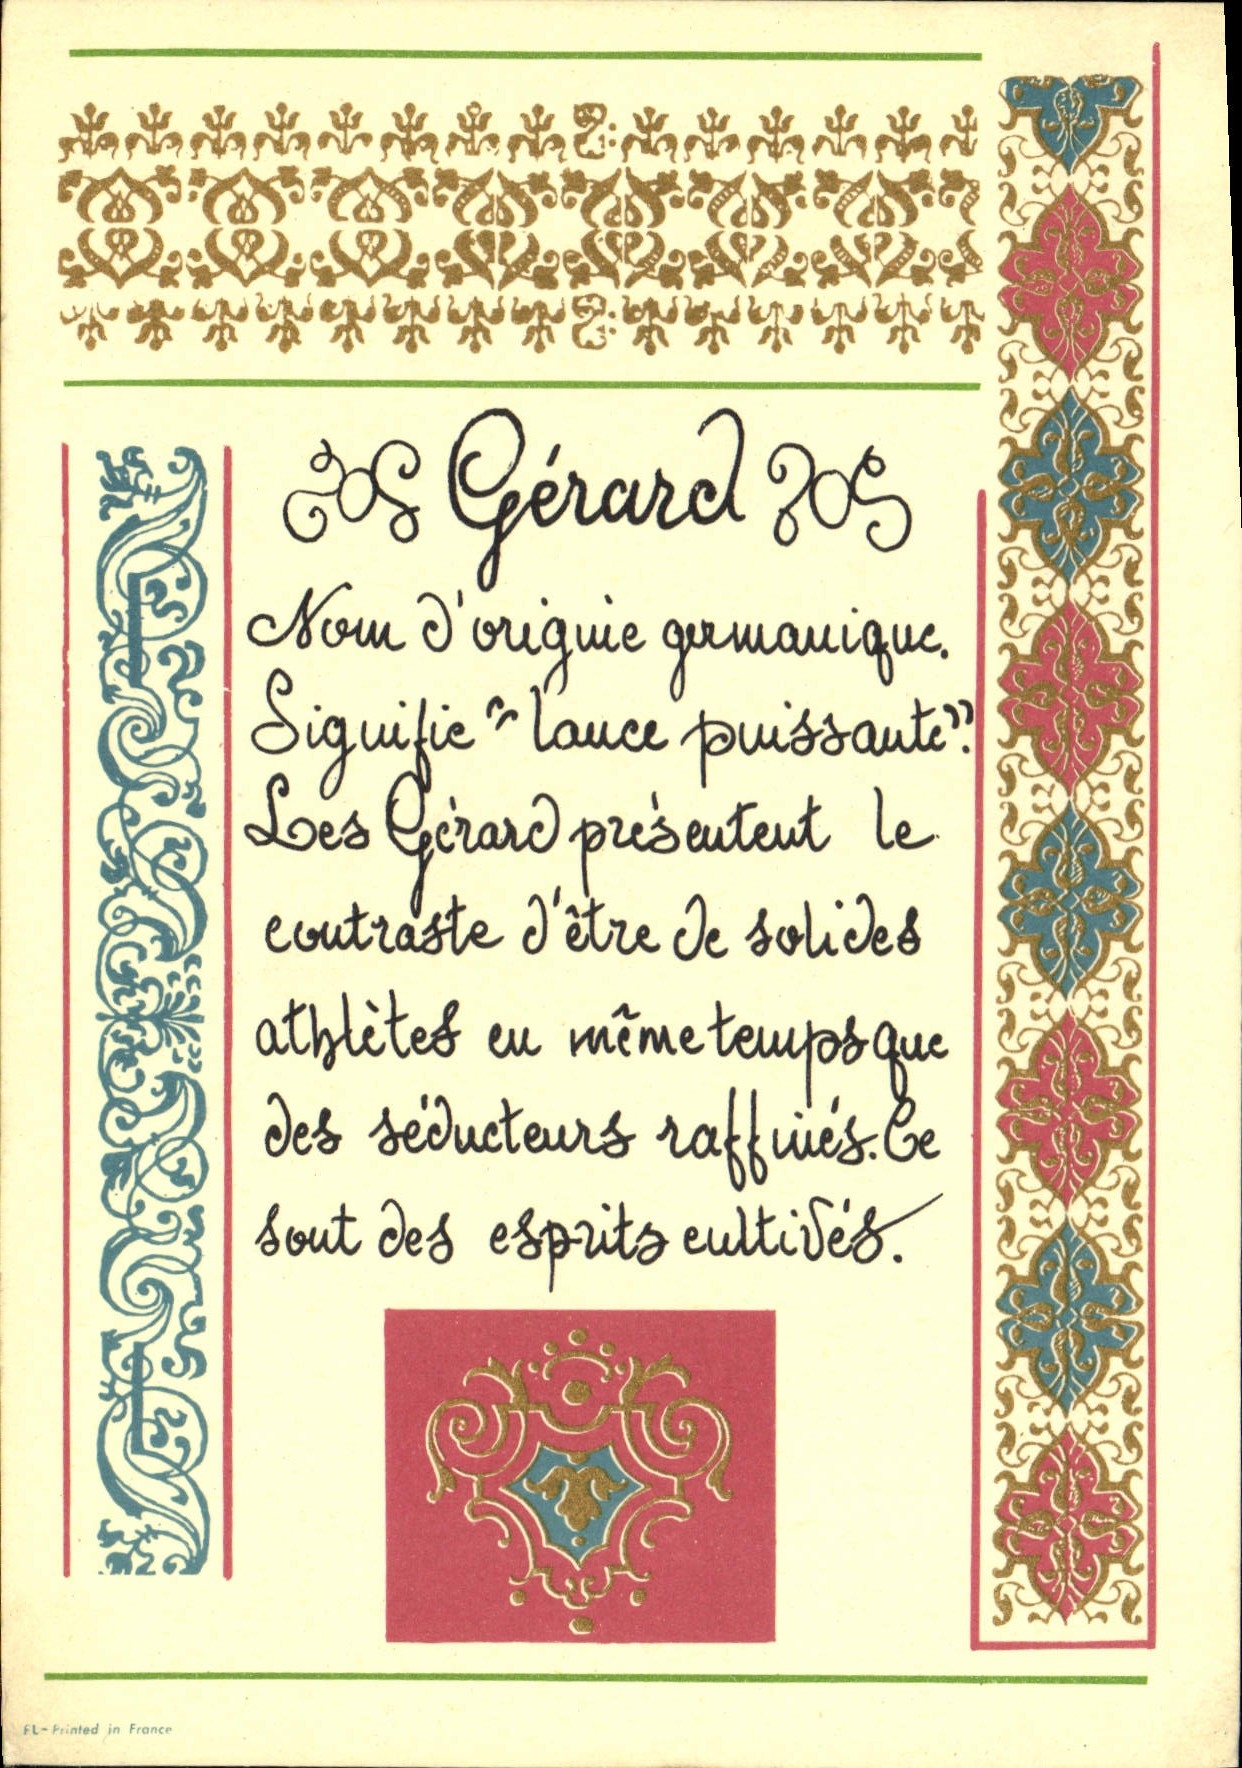 Gérard
Nom d'origine germanique.
Signifie "lance puissante".
Les Gérard présentent le
contraste d'être de solides
athlètes en même temps que
des séducteurs raffinés. Ce
sont des esprits cultivés.
FL-Printed in France